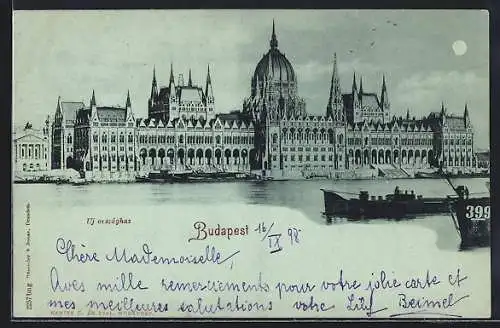 399
Uj országház
Budapest 16/IX 98
Chère Mademoiselle,
Avec mille remerciements pour votre jolie carte et
mes meilleures salutations votre Lily Beimel